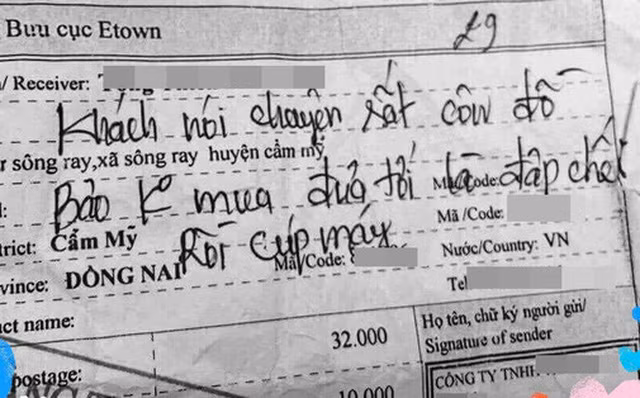 Bưu cục Etown
29
/ Receiver:
Khách nói chuyện rất côn đồ
r sông ray,xã sông ray huyện cẩm mỹ
Bảo K mua đưa tới là đập chết
Mã /Code:
trict: Cẩm Mỹ
Rồi cúp máy
Mã/Code:
Nước/Country: VN
vince: ĐỒNG NAI
Tel
act name:
32.000
Họ tên, chữ ký người gửi/
Signature of sender
postage:
10.000
CÔNG TY TNH